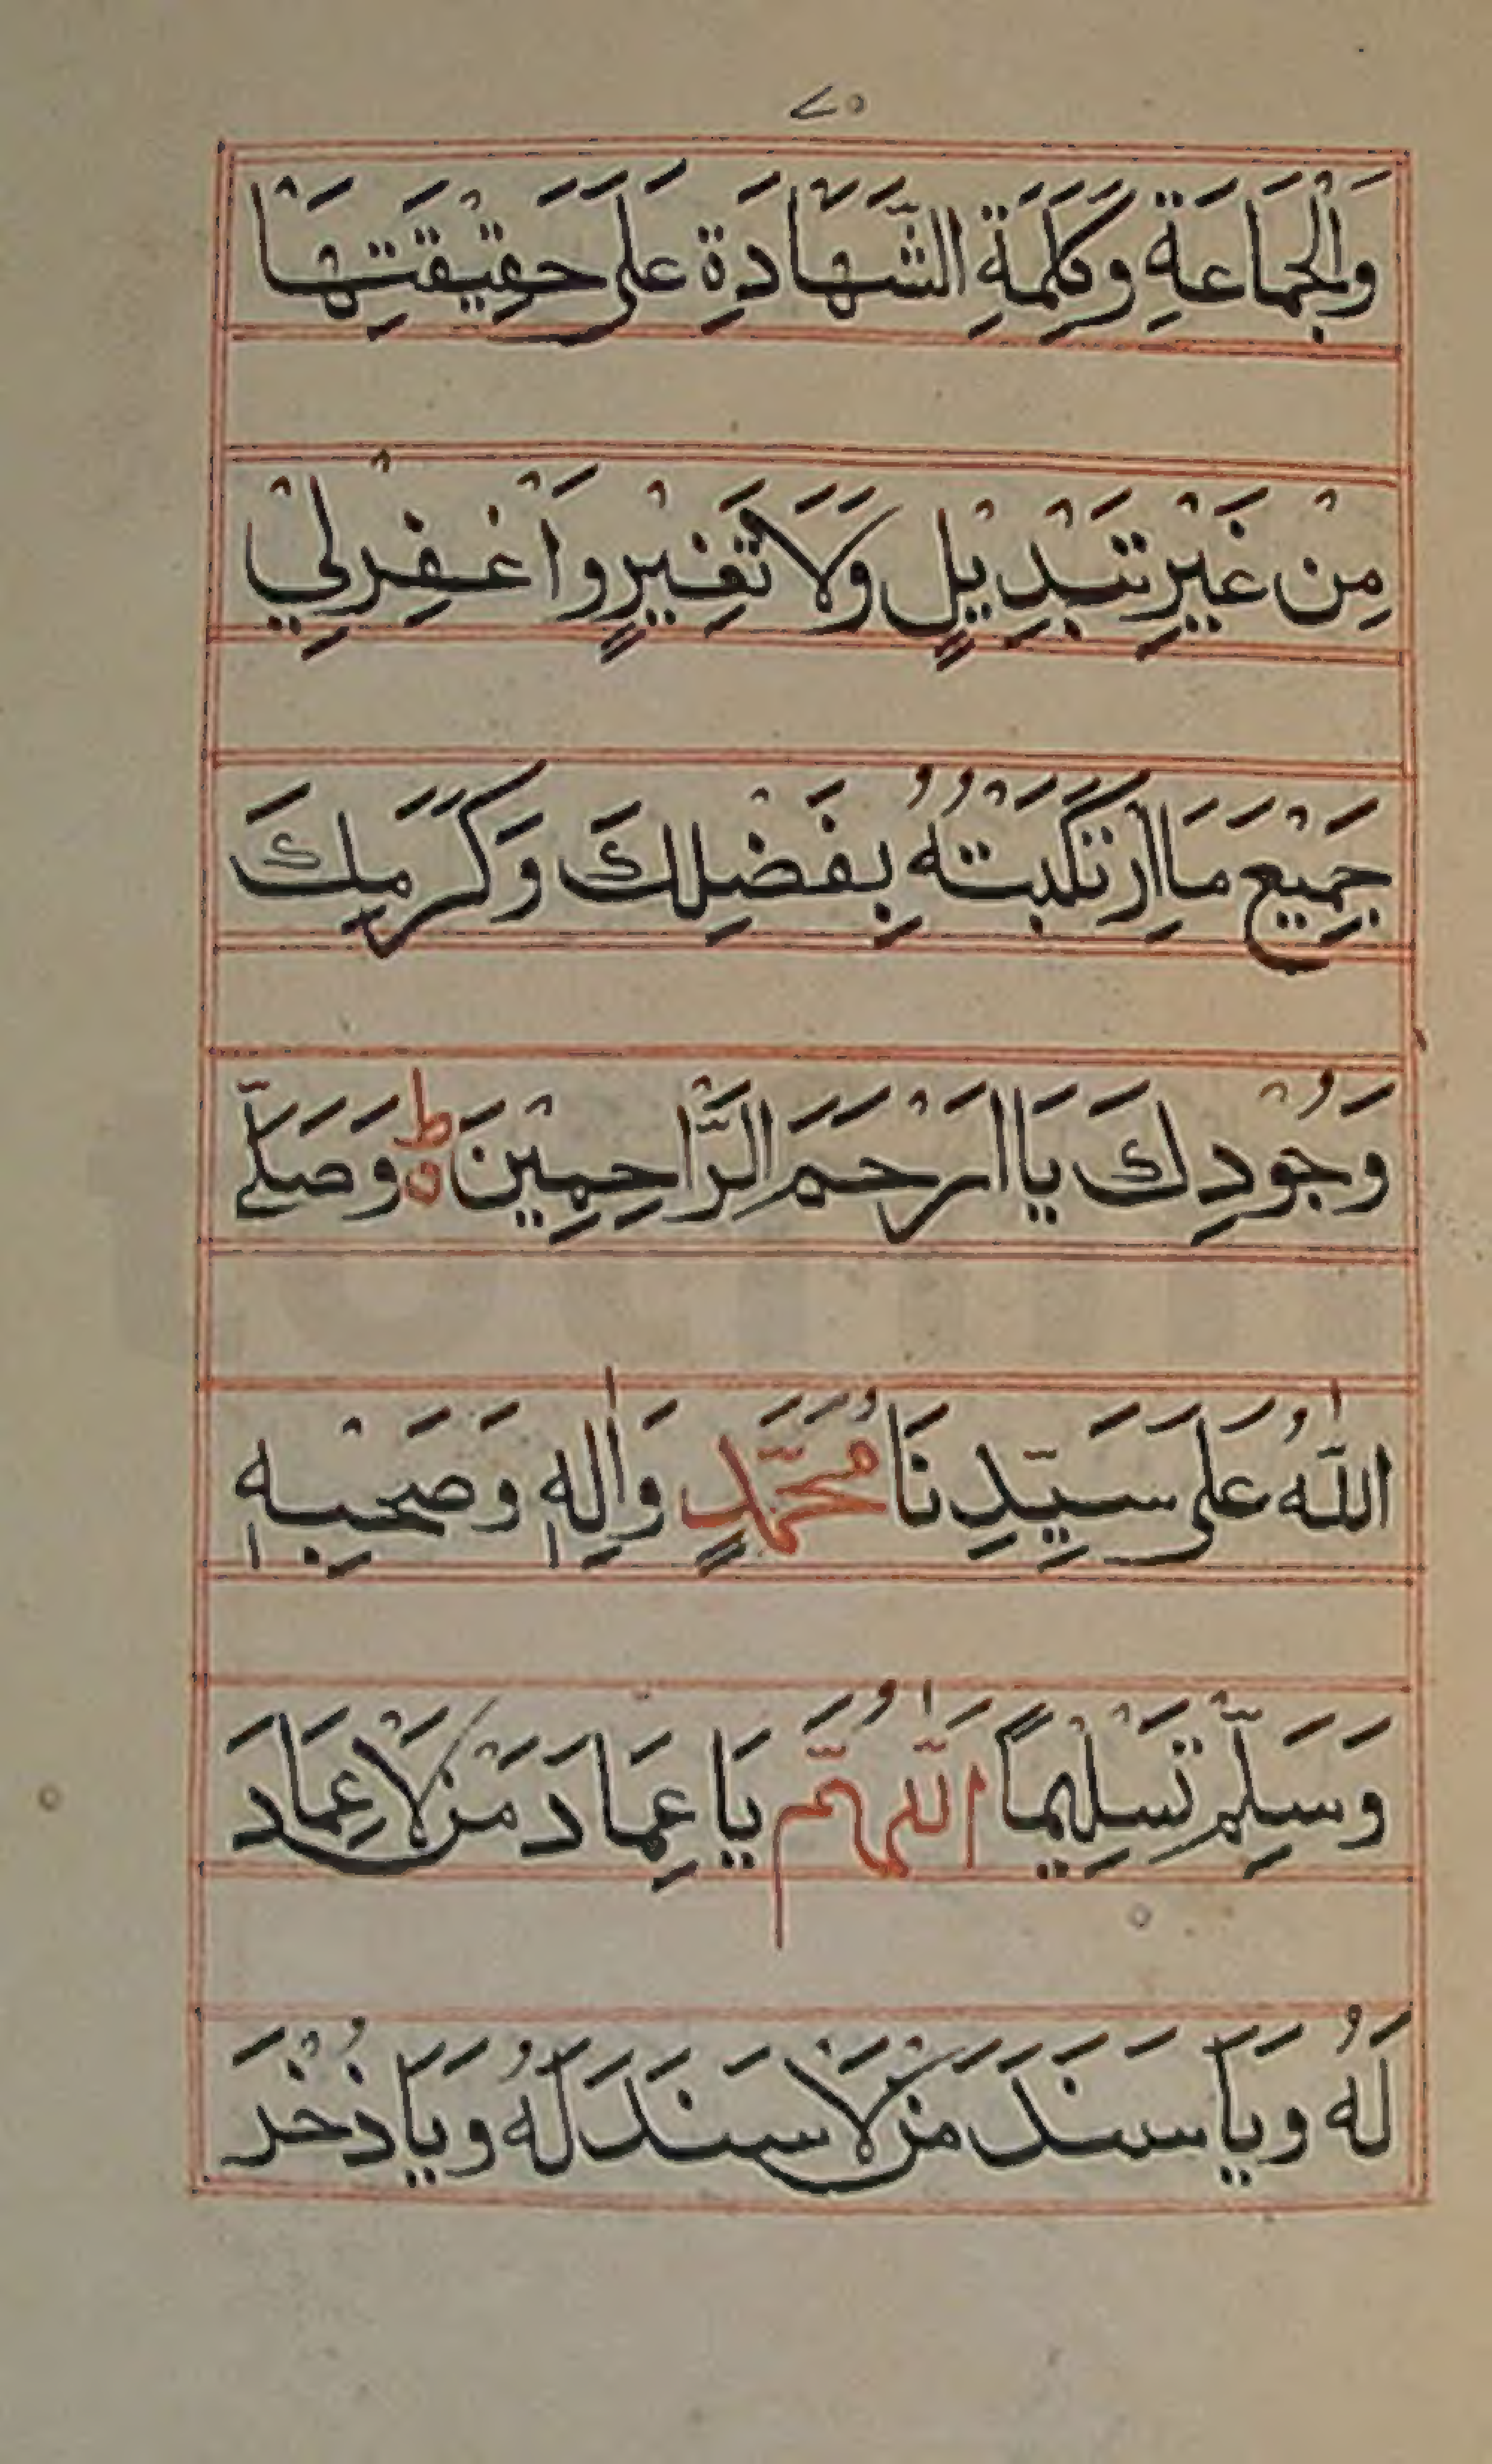 ٧٥
وَالْجَمَاعَةِ وَكَلِمَةِ الشَّهَادَةِ عَلَى حَقِيْقَتِهَا
مِنْ غَيْرِ تَبْدِيْلٍ وَلَا تَغْيِيْرٍ وَاغْفِرْ لِيْ
جَمِيْعَ مَا اِرْتَكَبْتُهُ بِفَضْلِكَ وَكَرَمِكَ
وَجُوْدِكَ يَا اَرْحَمَ الرَّاحِمِيْنَ ەؕ وَصَلَّى
اللّٰهُ عَلَى سَيِّدِنَا مُحَمَّدٍ وَاٰلِهٖ وَصَحْبِهٖ
وَسَلِّمْ تَسْلِيْمًا اَللّٰهُمَّ يَا عِمَادَ مَنْ لَا عِمَادَ
لَهُ وَيَا سَنَدَ مَنْ لَا سَنَدَ لَهُ وَيَا ذُخْرَ